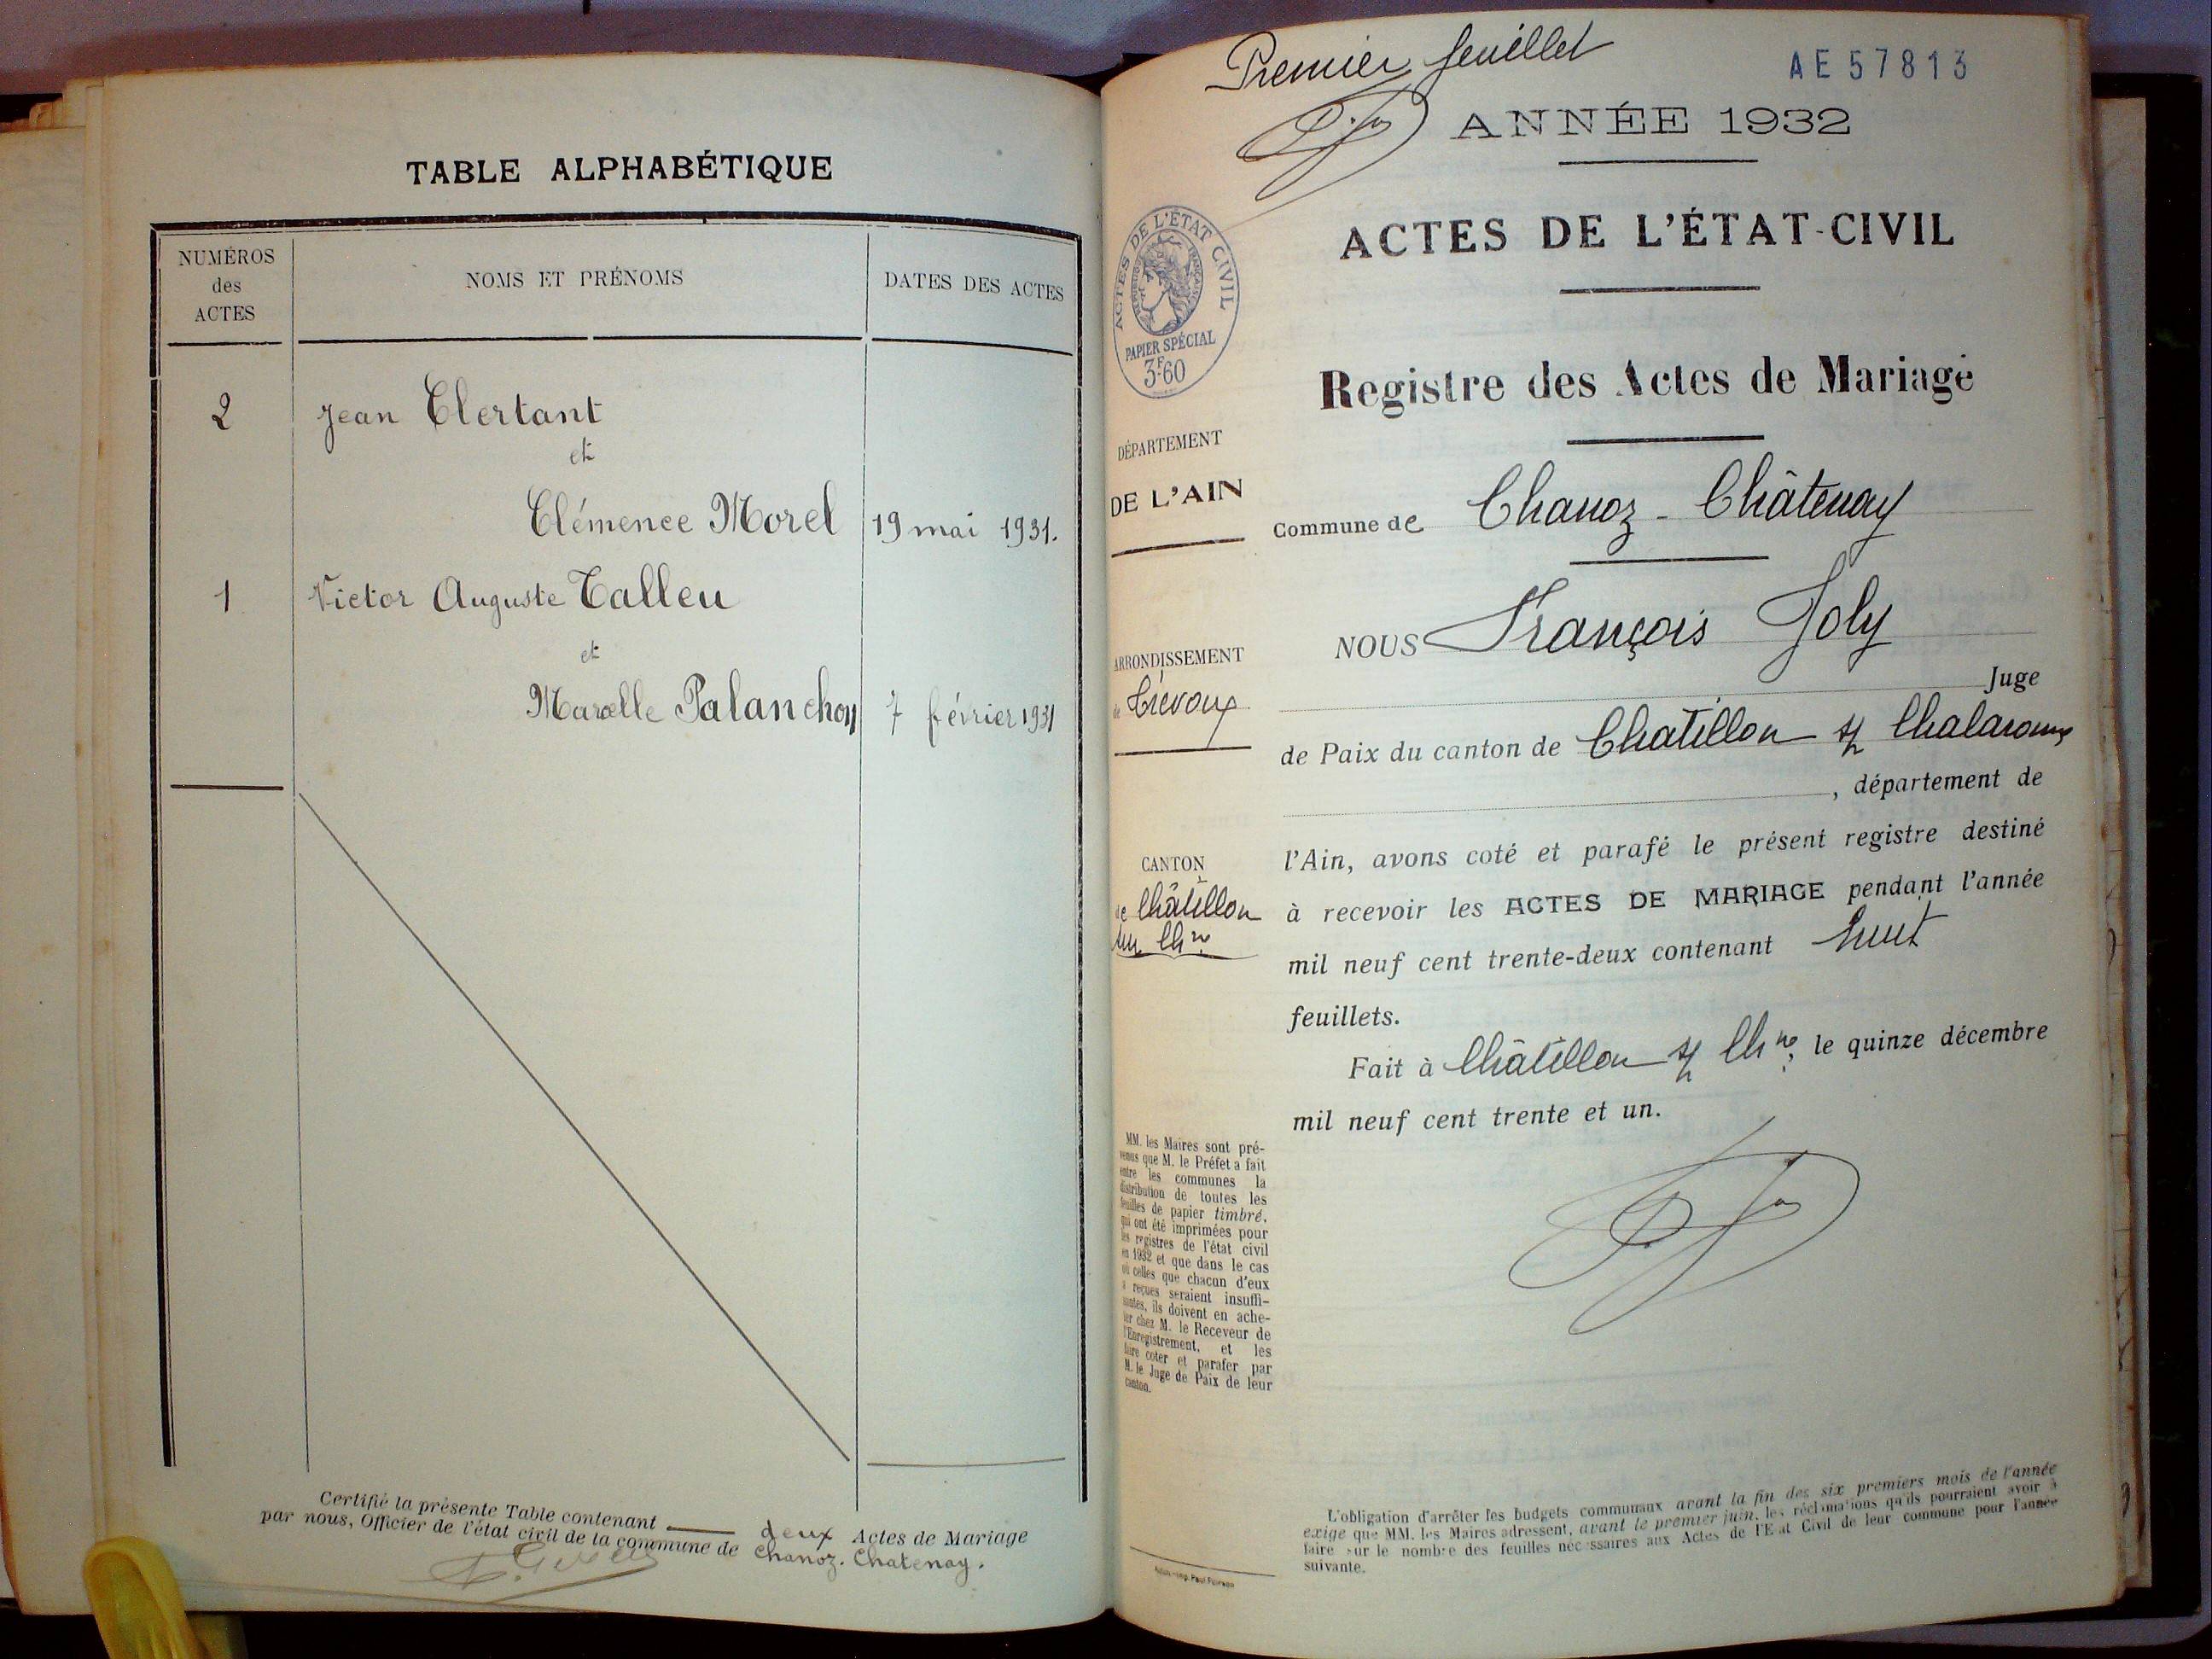 TABLE ALPHABÉTIQUE
NUMÉROS
des
ACTES
NOMS ET PRÉNOMS
DATES DES ACTES
2 Jean Clertant
et
Clémence Morel 19 mai 1931.
1 Victor Auguste Talleu
et
Marcelle Palanchon 7 février 1931
Certifié la présente Table contenant deux Actes de Mariage
par nous, Officier de l'état civil de la commune de Chanoz-Chatenay.
Premier feuillet
AE57813
ANNÉE 1932
ACTES DE L'ÉTAT-CIVIL
ACTES DE L'ÉTAT CIVIL
RÉPUBLIQUE FRANÇAISE
PAPIER SPÉCIAL
3F60
Registre des Actes de Mariage
DÉPARTEMENT
DE L'AIN
Commune de Chanoz-Châtenay
NOUS François Joly
ARRONDISSEMENT
de Trévoux
Juge
de Paix du canton de Chatillon s/ Chalaronne
, département de
CANTON
de Châtillon
sur Chne
l'Ain, avons coté et parafé le présent registre destiné
à recevoir les ACTES DE MARIAGE pendant l'année
mil neuf cent trente-deux contenant huit
feuillets.
Fait à Châtillon s/ Chne, le quinze décembre
mil neuf cent trente et un.
MM. les Maires sont pré-
venus que M. le Préfet a fait
entre les communes la
distribution de toutes les
feuilles de papier timbré,
qui ont été imprimées pour
les registres de l'état civil
en 1932 et que dans le cas
où celles que chacun d'eux
a reçues seraient insuffi-
santes, ils doivent en ache-
ter chez M. le Receveur de
l'Enregistrement, et les
faire coter et parafer par
M. le Juge de Paix de leur
canton.
L'obligation d'arrêter les budgets communaux avant la fin des six premiers mois de l'année
exige que MM. les Maires adressent, avant le premier juin, les réclamations qu'ils pourraient avoir à
faire sur le nombre des feuilles nécessaires aux Actes de l'Etat Civil de leur commune pour l'année
suivante.